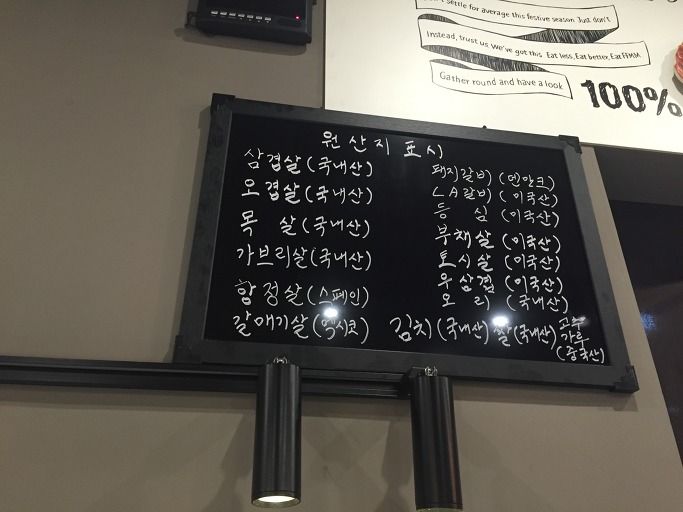 settle for average this festive season Just don't
Instead, trust us We've got this Eat less, Eat better, Eat
Gather round and have a look
100%
원산지표시
삼겹살 (국내산)
오겹살 (국내산)
목 살 (국내산)
가브리살 (국내산)
항정살 (스페인)
갈매기살 (멕시코)
돼지갈비 (덴마크)
LA갈비 (미국산)
등 심 (미국산)
부채살 (미국산)
토시살 (미국산)
우삼겹 (미국산)
오 리 (국내산)
김치 (국내산) 쌀 (국내산) 고추
가루
(중국산)